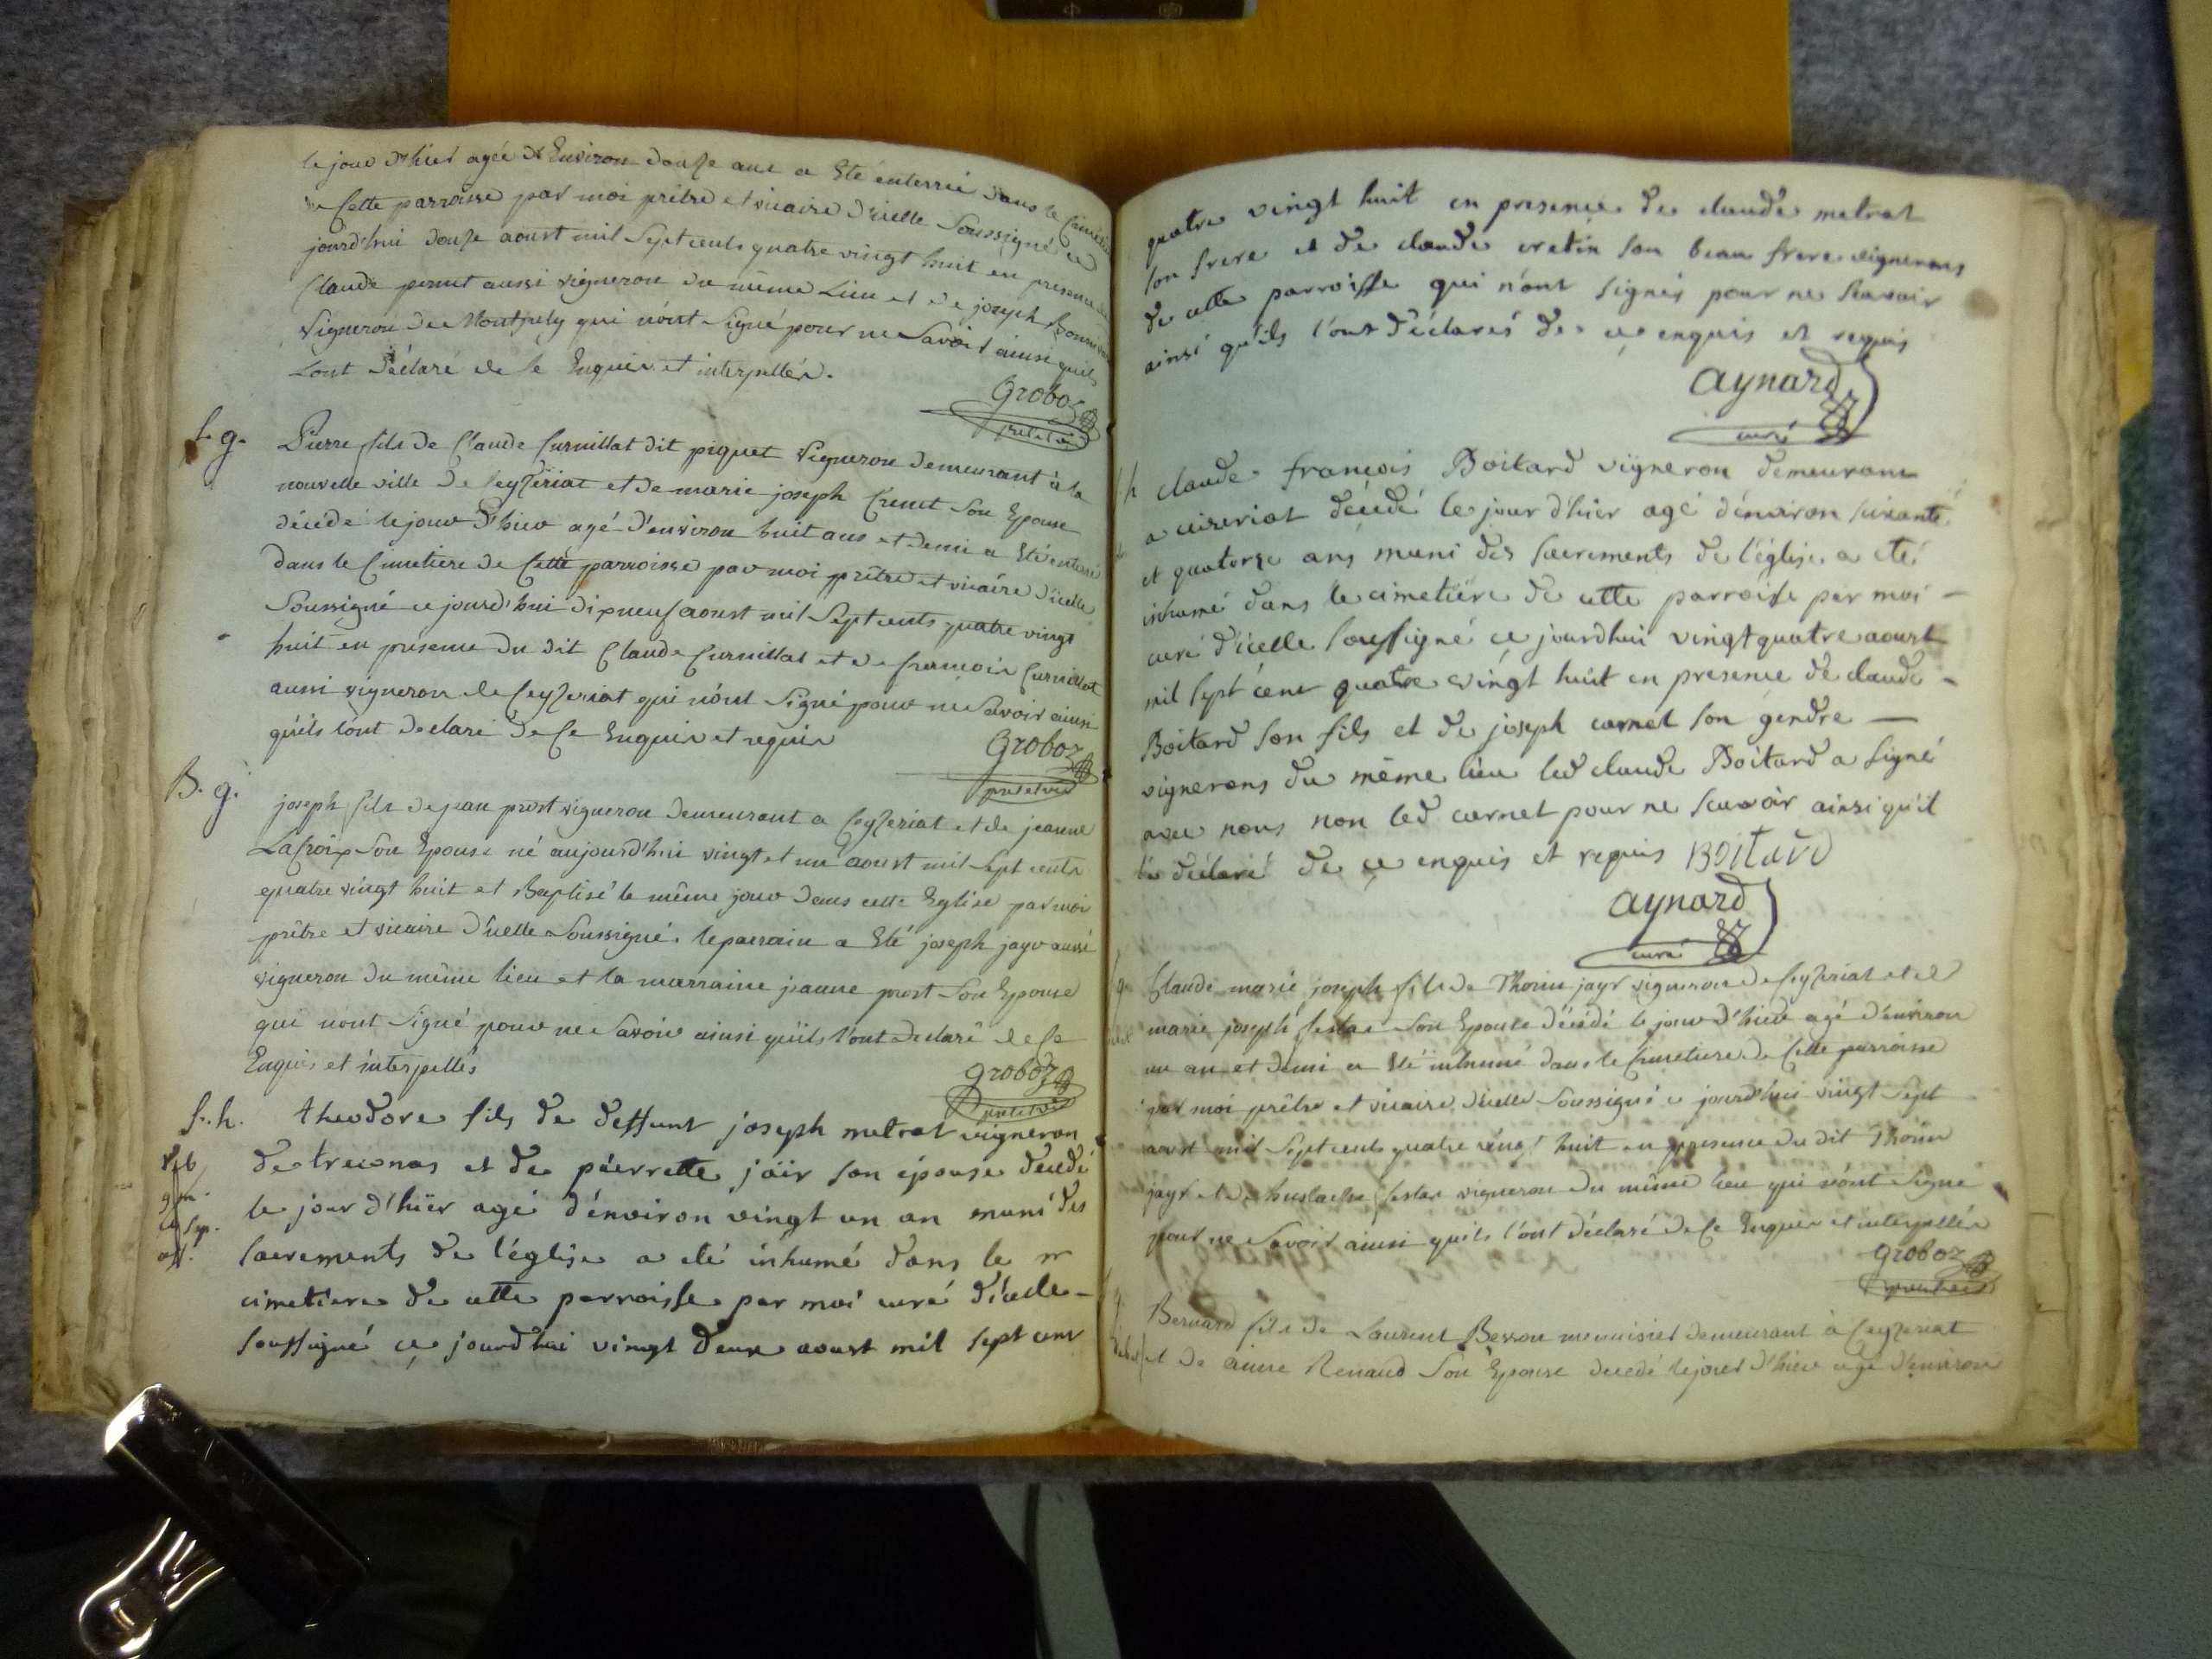 le jour d'hier agée d'Environ douze ans a Eté enterrée dans le Cimetiere
de Cette parroisse par moi prêtre et vicaire d'icelle Soussigné ce
jourd'hui douze aoust mil Sept cents quatre vingt huit en presence de
Claude pernet aussi vigneron du même Lieu et de joseph
vigneron de Montjuly qui n'ont Signé pour ne Savoir ainsi quils
L'ont déclaré de Ce Enquis et interpellés.
Groboz
prêt et vic
S. g.
Pierre fils de Claude Curnillat dit piquet vigneron demeurant à la
nouvelle ville de Ceyzériat et de marie joseph Son Epouse
décédé le jour d'hier agé d'environ huit ans et demi a Eté enterré
dans le Cimetiere de Cette parroisse par moi prêtre et vicaire d'icelle
Soussigné ce jourd'hui dixneuf aoust mil Sept cents quatre vingt
huit en présence du dit Claude Curnillat et de francois Curnillat
aussi vigneron de Ceyzeriat qui n'ont Signé pour ne Savoir ainsi
qu'ils l'ont declaré de Ce Enquis et requis
Groboz
prêt et vic
B. g.
joseph fils de jean prost vigneron demeurant a Ceyzeriat et de jeanne
LaCroix Son Epouse né aujourd'hui vingt et un aoust mil Sept cents
quatre vingt huit et Baptisé le même jour dans cette Eglise par moi
prêtre et vicaire d'icelle Soussigné. le parrain a Eté joseph jayr aussi
vigneron du même lieu et la marraine jeanne prost Son Epouse
qui n'ont Signé pour ne Savoir ainsi qu'ils l'ont declaré de Ce
Enquis et interpellés
groboz
prêt et vic
S. h.
theodore fils de deffunt joseph metrat vigneron
de treconas et de pierrette jaïr son épouse décédé
le jour d'hïer agé d'énviron vingt un an muni des
sacrements de l'église a été inhumé dans le
cimetiere de cette parroisse par moi curé d'icelle
soussigné ce jourd'hui vingt deux aoust mil sept cent
quatre vingt huit en presence de claude metrat
son frere et de claude cretin son beau frere vignerons
de cette parroisse qui n'ont signés pour ne scavoir
ainsi qu'ils l'ont déclarés de ce enquis et requis
aynard
curé
h
claude françois Boitard vigneron demeurant
a ceizeriat décédé le jour d'hier agé d'énviron soixante
et quatorze ans muni des sacrements de l'église a eté
inhumé dans le cimetiére de cette parroisse par moi
curé d'icelle soussigné ce jourdhui vingtquatre aoust
mil sept cent quatre vingt huit en presence de claude
Boitard son fils et de joseph carnet son gendre
vignerons du même lieu led claude Boitard a signé
avec nous non led carnet pour ne scavoir ainsi qu'il
l'a déclaré de ce enquis et requis BOITARD
aynard
curé
g.
Claude marie joseph fils de Thorin jayr vigneron de Ceyzeriat et de
marie joseph Sestas Son Epouse décédé le jour d'hier agé d'environ
un an et demi a Eté inhumé dans le Cimetiere de Cette parroisse
par moi prêtre et vicaire d'icelle Soussigné ce jourd'hui vingt Sept
aoust mil Sept cents quatre vingt huit en presence du dit Thorin
jayr et de hustache Sestas vigneron du même lieu qui n'ont Signé
pour ne Savoir ainsi quils l'ont déclaré de Ce Enquis et interpellés
groboz
Bernard fils de Laurent Besson menuisier demeurant à Ceyzeriat
et de aime Renaud Son Epouse decedé le jour d'hier agé d'environ